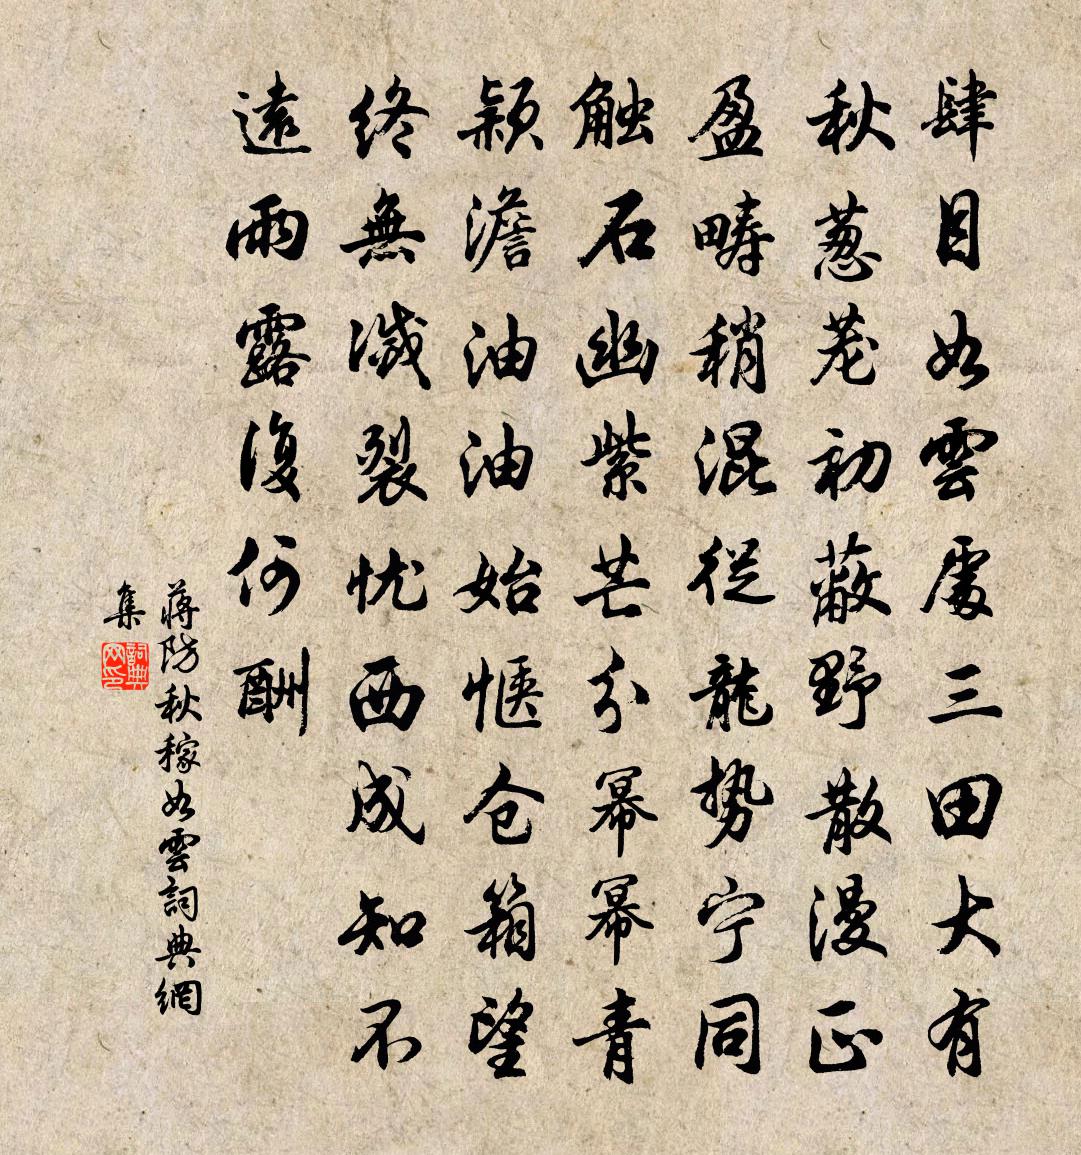 肆目如雲處三田大有
秋葱茏初蔽野散漫正
盈疇稍混從龍势宁同
触石幽紫芒分幂幂青
颖澹油油始惬仓箱望
終無滅裂忧西成知不
遠雨露復何酬
蔣防秋稼如雲詞典網
集
詞典網印